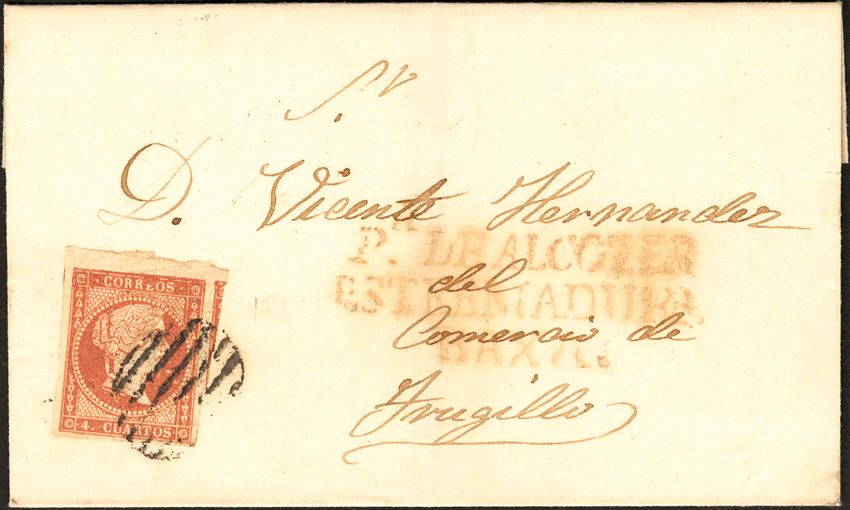 Sr
D. Vicente Hernandez
P.A DE ALCOZER
del
ESTREMADURA
Comercio de
BAXA.
Trugillo
CORREOS
4. CUARTOS